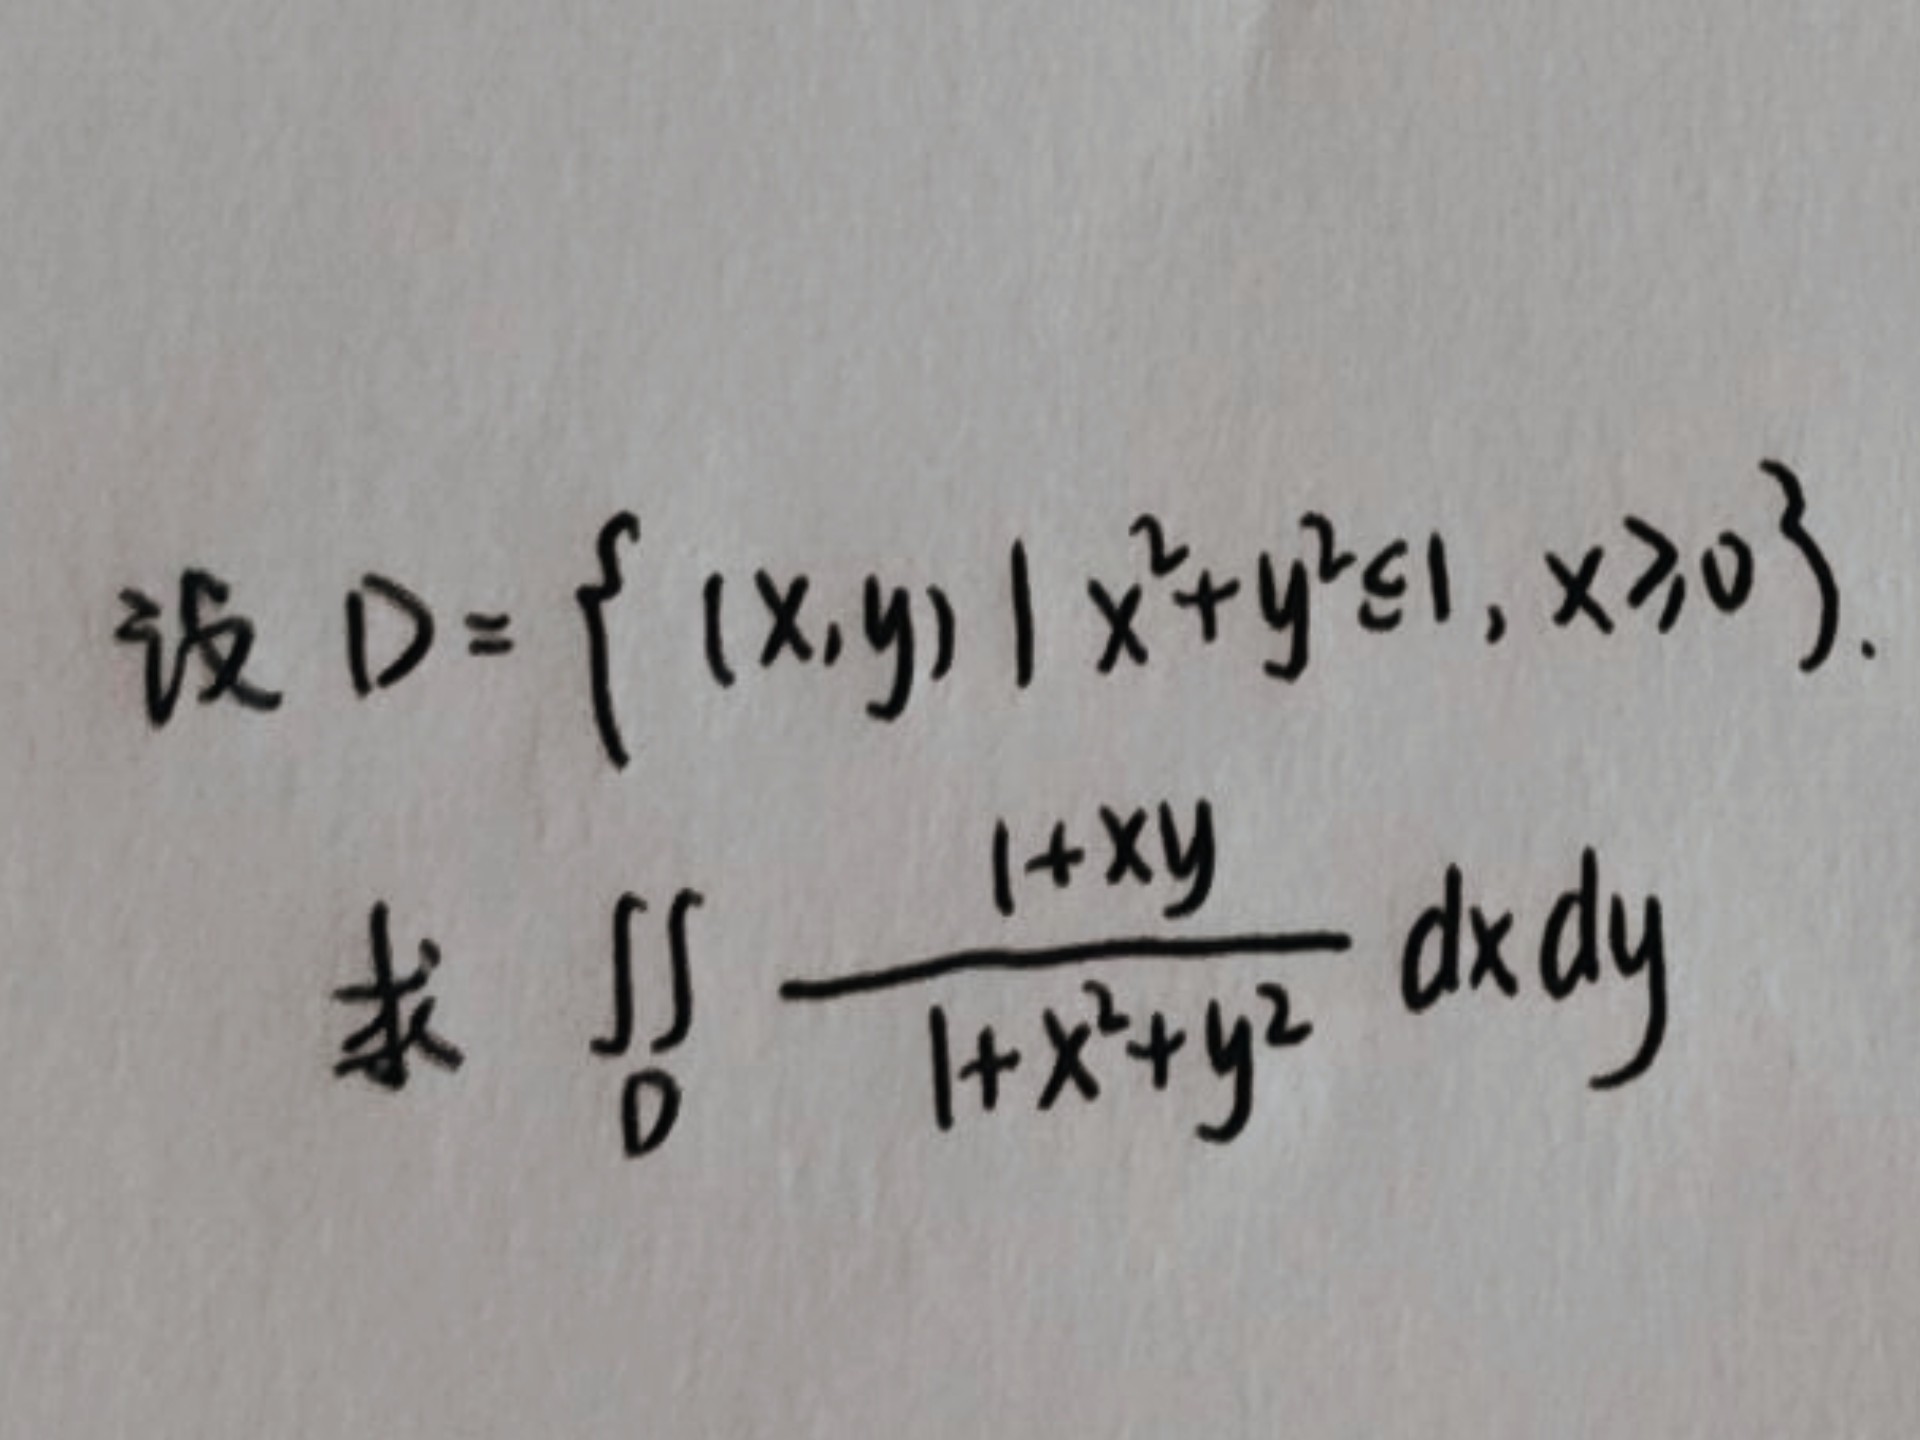 设 D = { (x,y) | x²+y²≤1, x≥0 }.
求 ∬_D (1+xy)/(1+x²+y²) dxdy